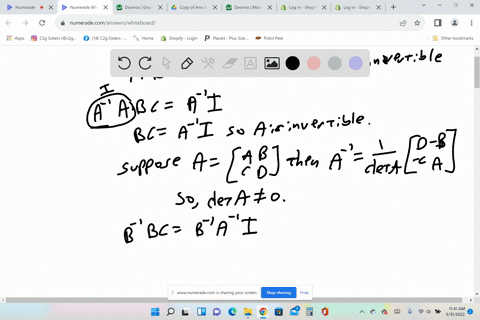 Numerade
Numerade Wh
Copy of Ann
Desmos | Grap
Desmos | Mat
Log in - Shop
Log in - Shop
numerade.com/answers/whiteboard/
C2g Sisters (@c2g...
(1) C2G Sisters -...
Home
Shopify - Login
Placeit - Plus Size...
Pistol Pete
Other Bookmarks
invertible
I
A⁻¹ A BC = A⁻¹ I
BC = A⁻¹ I so A is invertible.
suppose A = [A B then A⁻¹ = 1/det A [D -B
C D] -C A]
So, det A ≠ 0.
B⁻¹ BC = B⁻¹ A⁻¹ I
www.numerade.com is sharing your screen.
Stop sharing
Hide
11:41 AM
5/31/2022